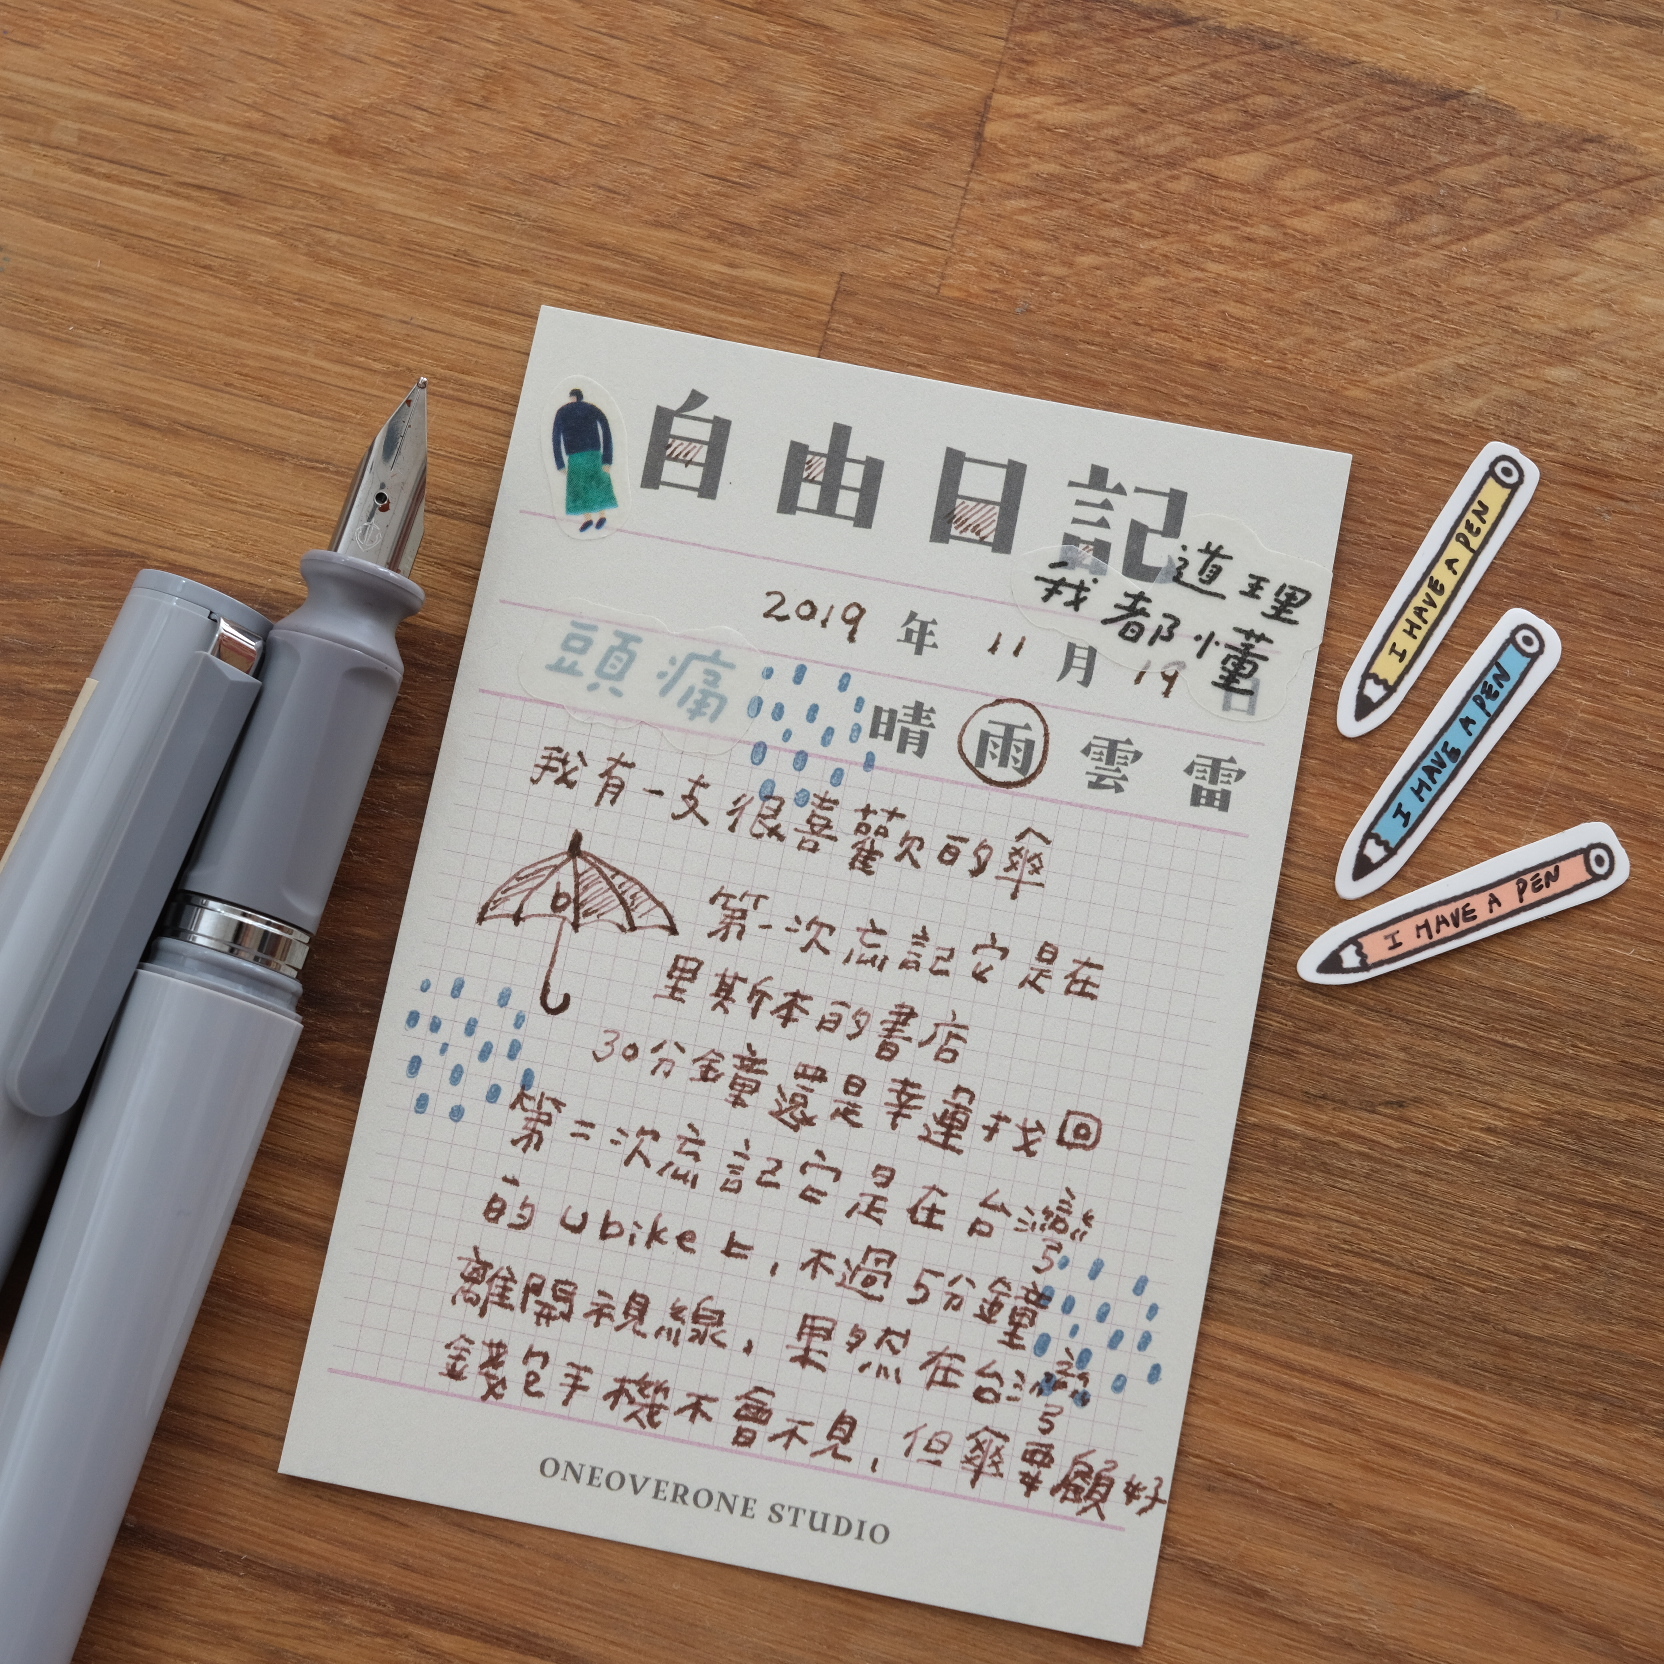 自由日記
道理
我都懂
2019年11月19日
頭痛
晴雨雲雷
我有一支很喜歡的傘
b
第一次忘記它是在
里斯本的書店
30分鐘還是幸運找回
第二次忘記它是在台灣
的Ubike上，不過5分鐘
離開視線，果然在台灣
錢包手機不會不見，但傘要顧好
ONEOVERONE STUDIO
I HAVE A PEN
I HAVE A PEN
I HAVE A PEN